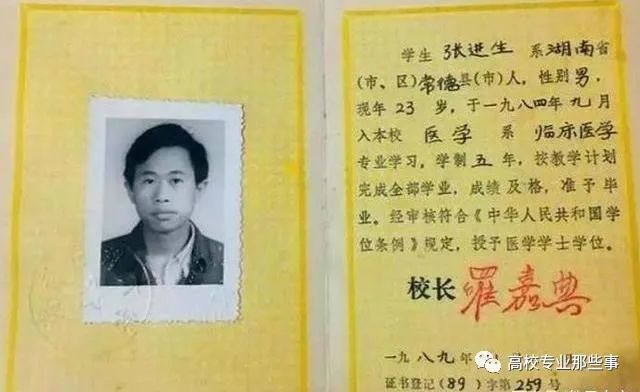 学生 张进生 系湖南省
(市、区)常德县(市)人，性别男，
现年 23 岁，于一九八四年九月
入本校 医学 系 临床医学
专业学习，学制五年，按教学计划
完成全部学业，成绩及格，准予毕
业。经审核符合《中华人民共和国学
位条例》规定，授予医学学士学位。
校长 罗嘉典
一九八九年
高校专业那些事
证书登记(89)字第259号